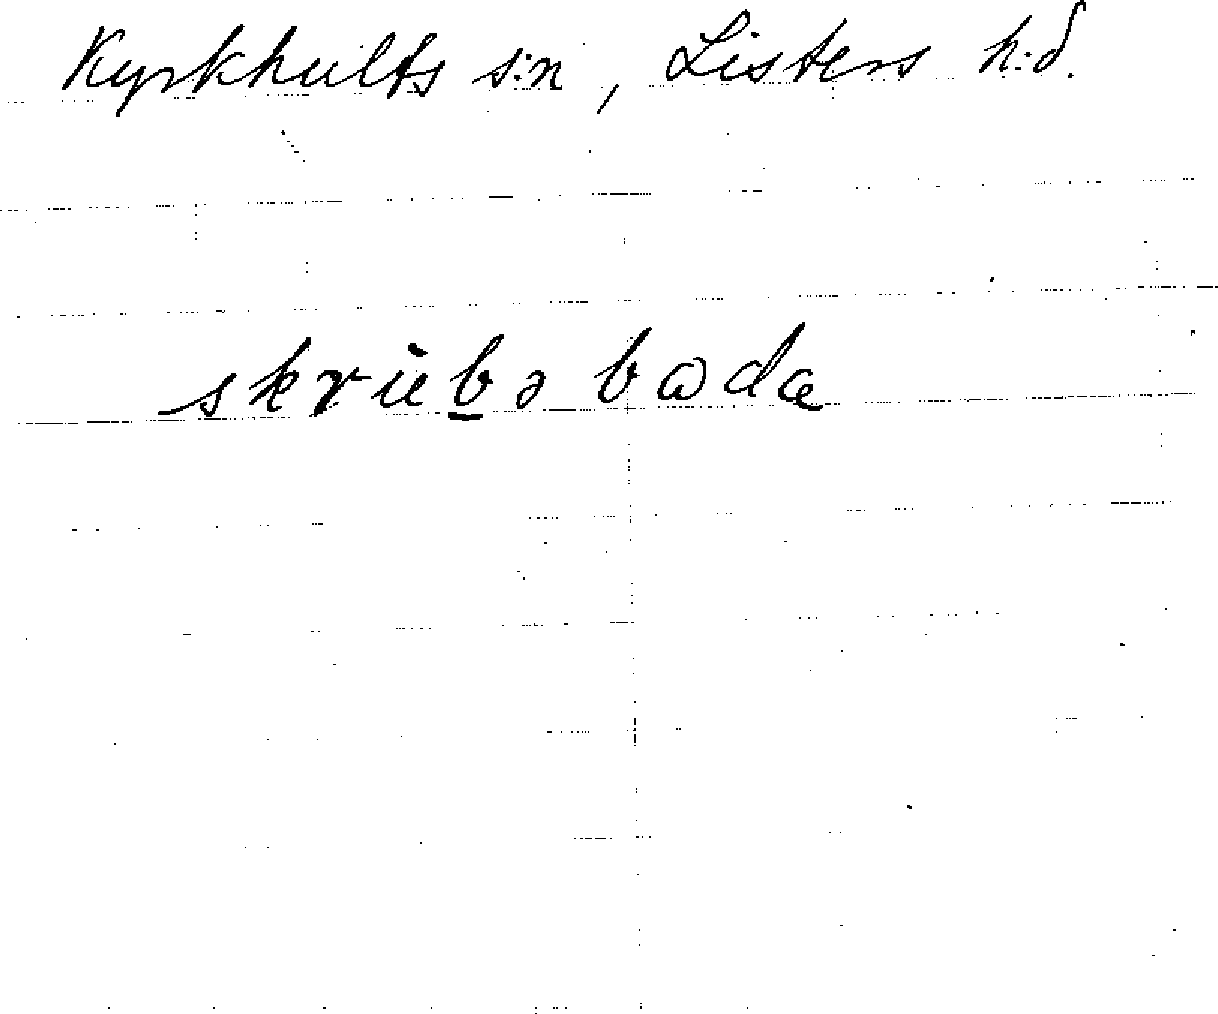 Kyrkhults s:n, Listers h:d.
skrùbə bada